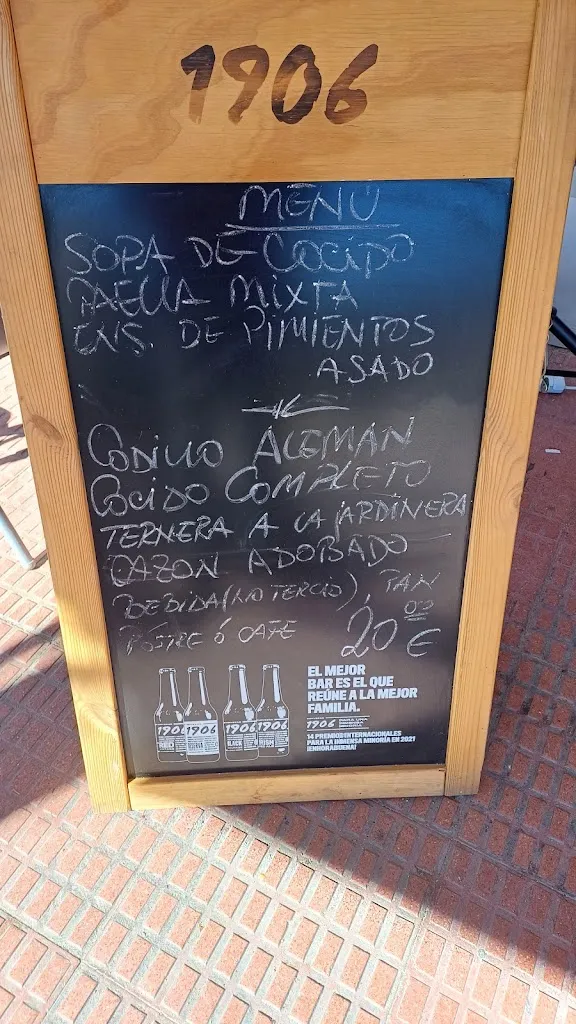 1906
MENÚ
SOPA DE COCIDO
PAELLA MIXTA
ENS. DE PIMIENTOS
ASADO
CODILLO ALEMAN
COCIDO COMPLETO
TERNERA A LA JARDINERA
CAZON ADOBADO
BEBIDA (NO TERCIO), PAN
POSTRE Ó CAFE 20,00 €
EL MEJOR
BAR ES EL QUE
REÚNE A LA MEJOR
FAMILIA.
1906 1906 1906 1906
1906
14 PREMIOS INTERNACIONALES
PARA LA INMENSA MINORÍA EN 2021
¡ENHORABUENA!